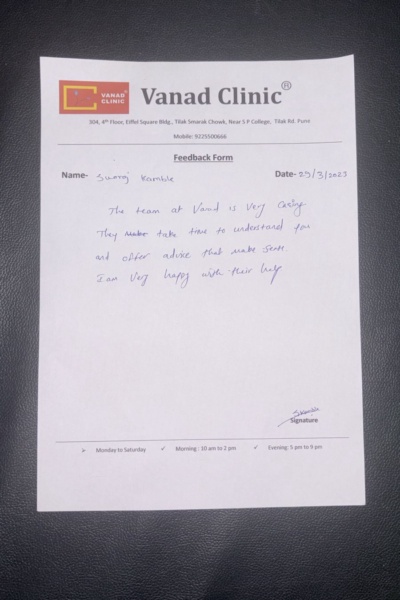 VANAD CLINIC
Vanad Clinic®
304, 4th Floor, Eiffel Square Bldg., Tilak Smarak Chowk, Near S P College, Tilak Rd. Pune
Mobile: 9225500666
Feedback Form
Name- Suraj Kamble Date- 29/3/2023
The team at Vanad is Very Caring
They make take time to understand you
and offer advice that make sense.
I am Very happy with their help
Signature
➢ Monday to Saturday ✓ Morning : 10 am to 2 pm ✓ Evening: 5 pm to 9 pm